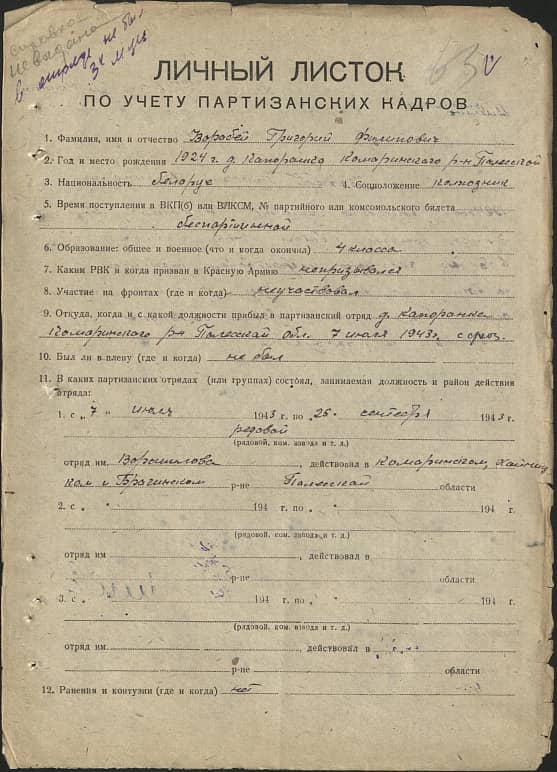 справка
не выдана
в отряде не был
3х м-цев
ЛИЧНЫЙ ЛИСТОК
ПО УЧЕТУ ПАРТИЗАНСКИХ КАДРОВ
1. Фамилия, имя и отчество Воробей Григорий Филипович
2. Год и место рождения 1924 г. д. Капоранка Комаринского р-н Полесской
3. Национальность белорус 4. Соцположение колхозник
5. Время поступления в ВКП(б) или ВЛКСМ, № партийного или комсомольского билета
беспартийной
6. Образование: общее и военное (что и когда окончил) 4 класса
7. Каким РВК и когда призван в Красную Армию непризывался
8. Участие на фронтах (где и когда) неучаствовал
9. Откуда, когда и с какой должности прибыл в партизанский отряд д. Капоранка
Комаринского р-н Полесской обл. 7 июля 1943 г.
10. Был ли в плену (где и когда) не был
11. В каких партизанских отрядах (или группах) состоял, занимаемая должность и район действия
отряда:
1. с „ 7 " июля 1943 г. по 26 сентебря 1943 г.
редовой
(рядовой, ком. взвода и т. д.)
отряд им Ворошилова, действовал в Комаринском, Хойниц
ком и Брагинском р-не Полесской области
2. с „ 194 г. по „ 194 г.
(рядовой, ком. взвода и т. д.)
отряд им, действовал в
р-не области
3. с „ 194 г. по „ 194 г.
(рядовой, ком. взвода и т. д.)
отряд им, действовал в
р-не области
12. Ранения и контузии (где и когда) нет